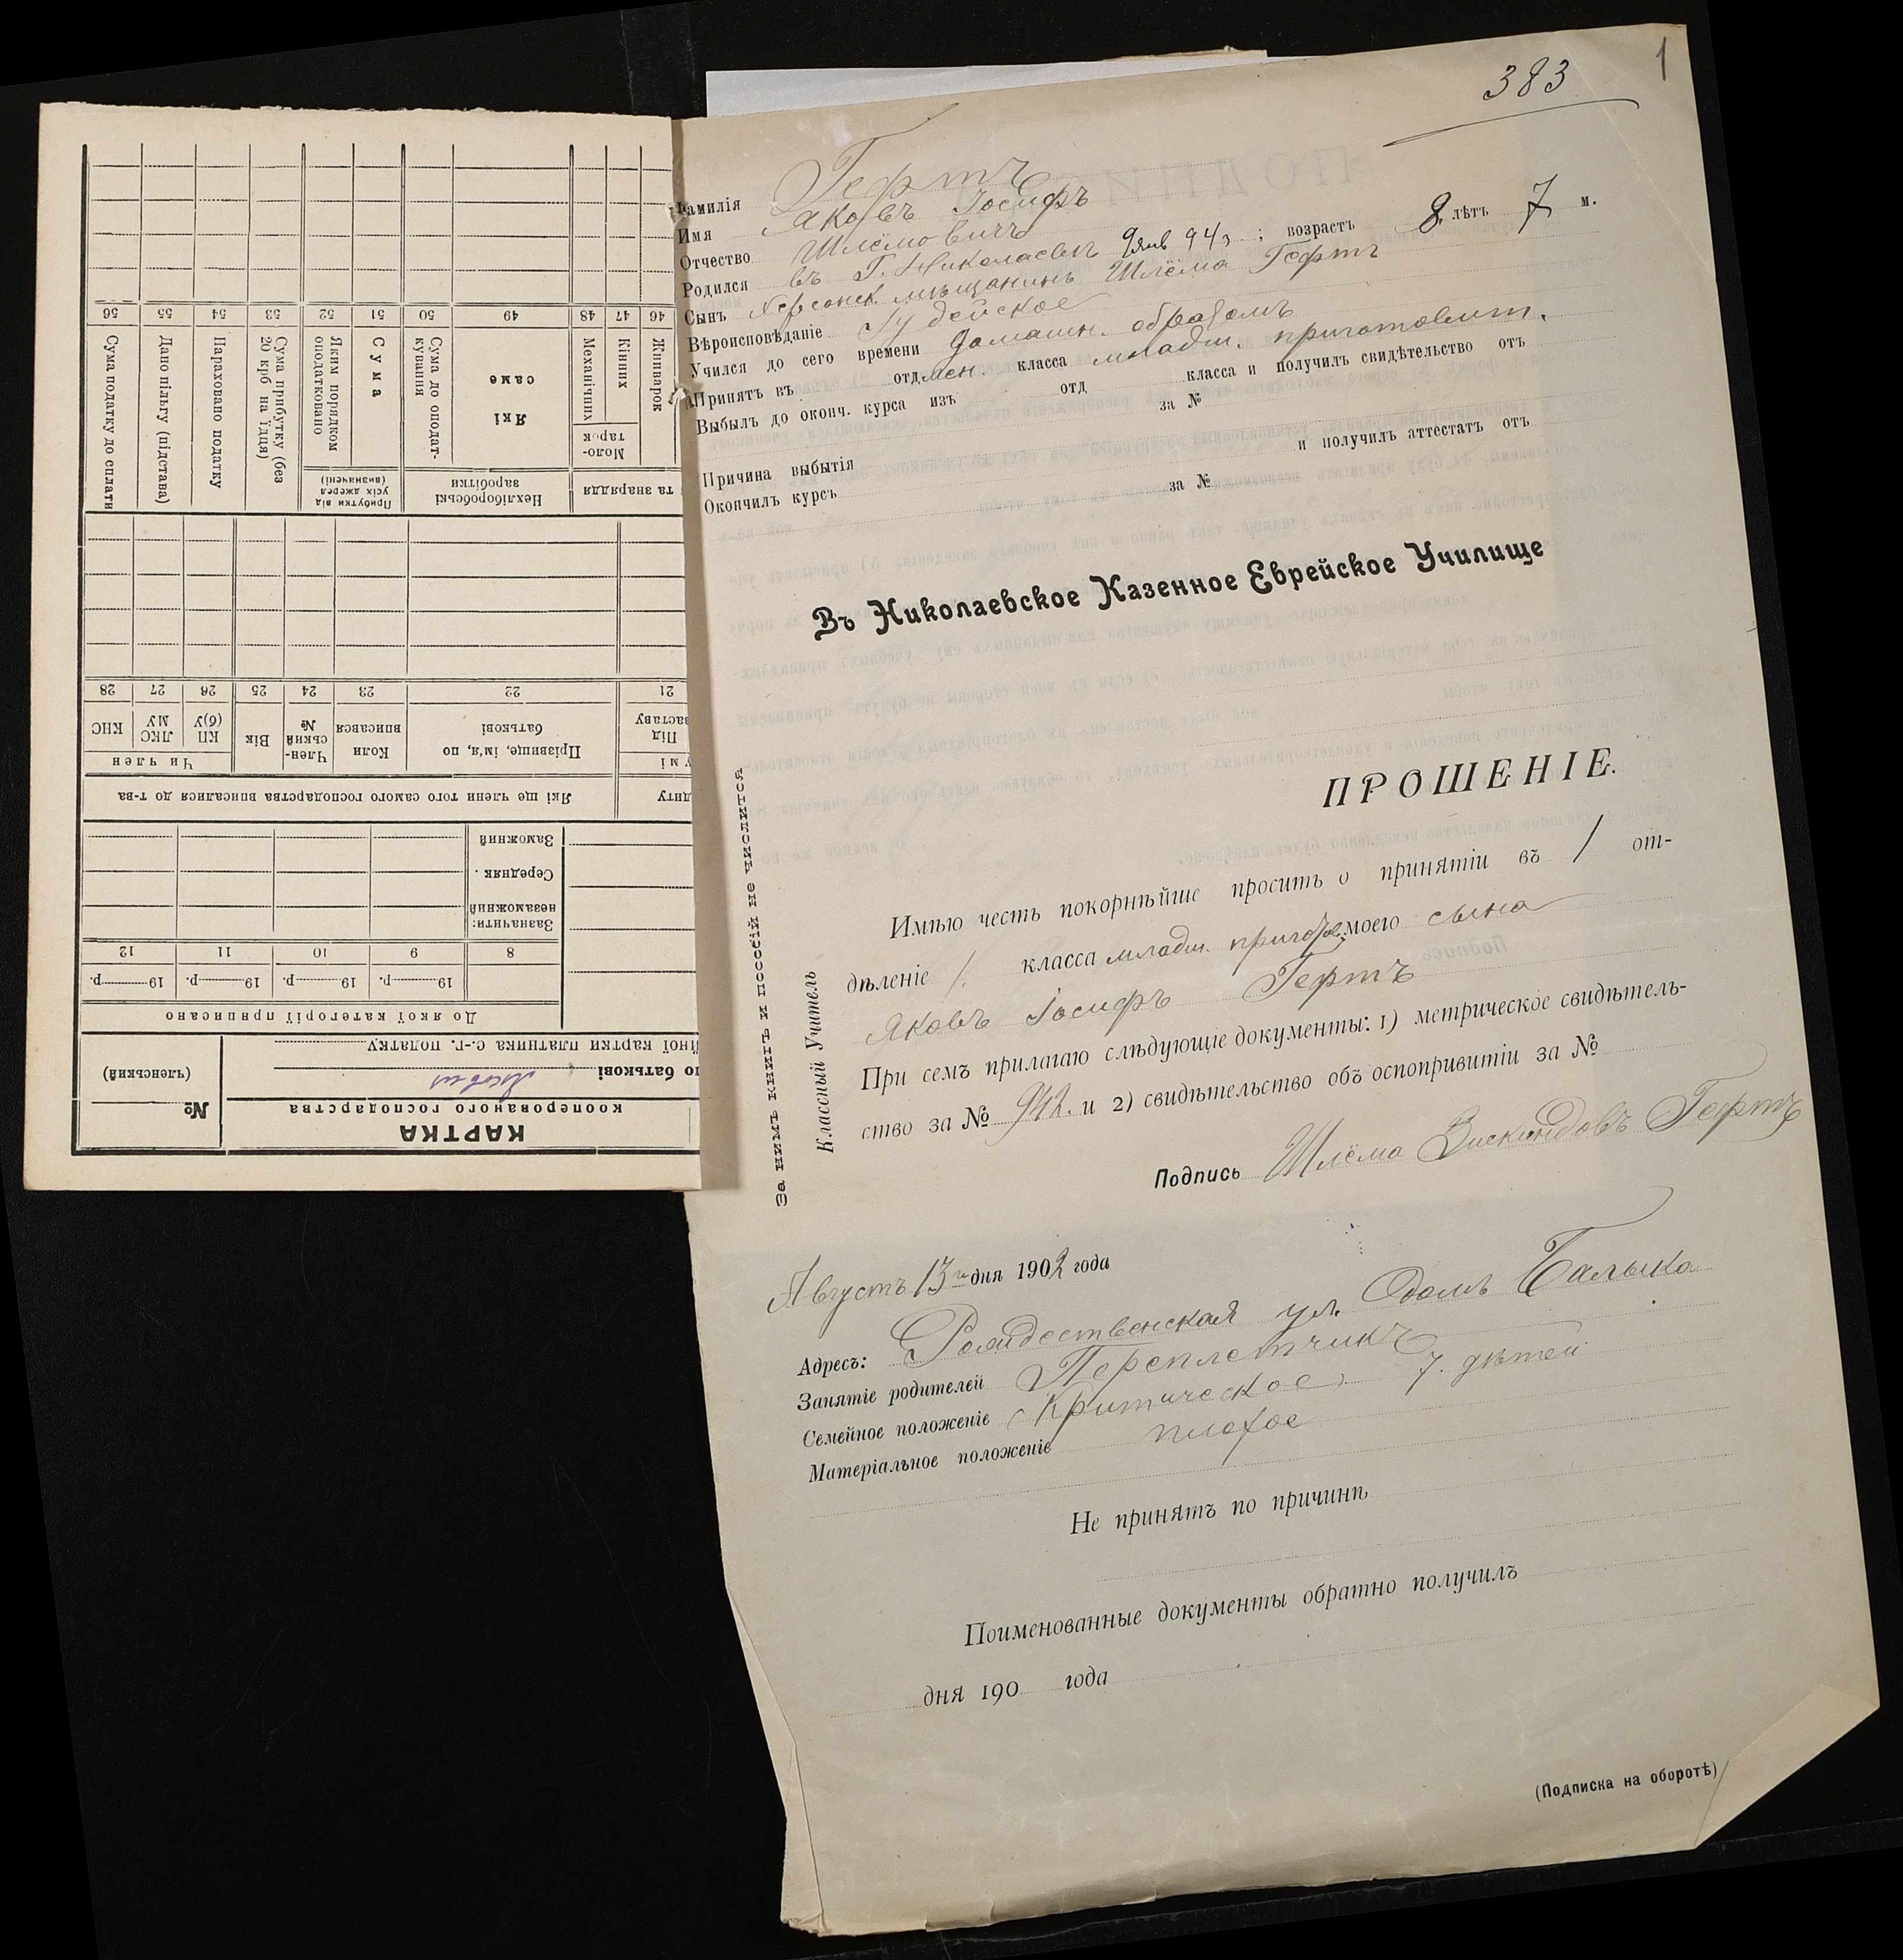 383
1
Фамилія Гефтъ
Имя Яковъ Іосифъ
Отчество Шлёмовичъ
Родился въ Г. Николаевѣ 9 янв 94 г ; возрастъ 8 лѣтъ 7 м.
Сынъ Херсонск. мѣщанинъ Шлёма Гефтъ
Вѣроисповѣданіе Іудейское
Учился до сего времени домашн. образомъ
Принятъ въ отд. класса младш. приготовит.
Выбылъ до оконч. курса изъ отд класса и получилъ свидѣтельство отъ
за №
Причина выбытія
Окончилъ курсъ и получилъ аттестатъ отъ
за №
Въ Николаевское Казенное Еврейское Училище
ПРОШЕНІЕ.
Имѣю честь покорнѣйше просить о принятіи въ 1 от-
дѣленіе 1. класса младш. приготов. моего сына
Яковъ Іосифъ Гефтъ
При семъ прилагаю слѣдующіе документы: 1) метрическое свидѣтель-
ство за № 942. и 2) свидѣтельство объ оспопривитіи за №
Подпись Шлёма Зискиндовъ Гефтъ
За нимъ книгъ и пособій не числится
Классный Учитель
Августъ 13 дня 1902 года
Адресъ: Рождественская ул. домъ Балыка
Занятіе родителей Переплетчикъ
Семейное положеніе Критическое, 7. дѣтей
Матеріальное положеніе плохое
Не принятъ по причинѣ
Поименованные документы обратно получилъ
дня 190 года
(Подписка на оборотѣ)
КАРТКА
кооперованого господарства
№
(членський)
по батькові
йної картки платника с.-г. податку
До якої категорії приписано
19 р. 19 р. 19 р. 19 р.
8 9 10 11 12
Зазначити:
незаможний
Середняк .
Заможний
Які ще члени того самого господарства вписалися до т-ва
Прізвище, ім'я, по батькові
Коли вписався
Член-ський №
Вік
Чи член
КП (б)У
ЛКС МУ
КНС
Під заставу
21 22 23 24 25 26 27 28
та знаряддя
Нехліборобські заробітки
Прибутки від усіх джерел (визначені)
Жниварок
Кінних
Механічних
Моло-тарок
Які саме
Сума до оподат-кування
Сума
Яким порядком оподатковано
Сума прибутку (без 20 крб на їдця)
Нараховано податку
Дано пільгу (підстава)
Сума податку до сплати
46 47 48 49 50 51 52 53 54 55 56